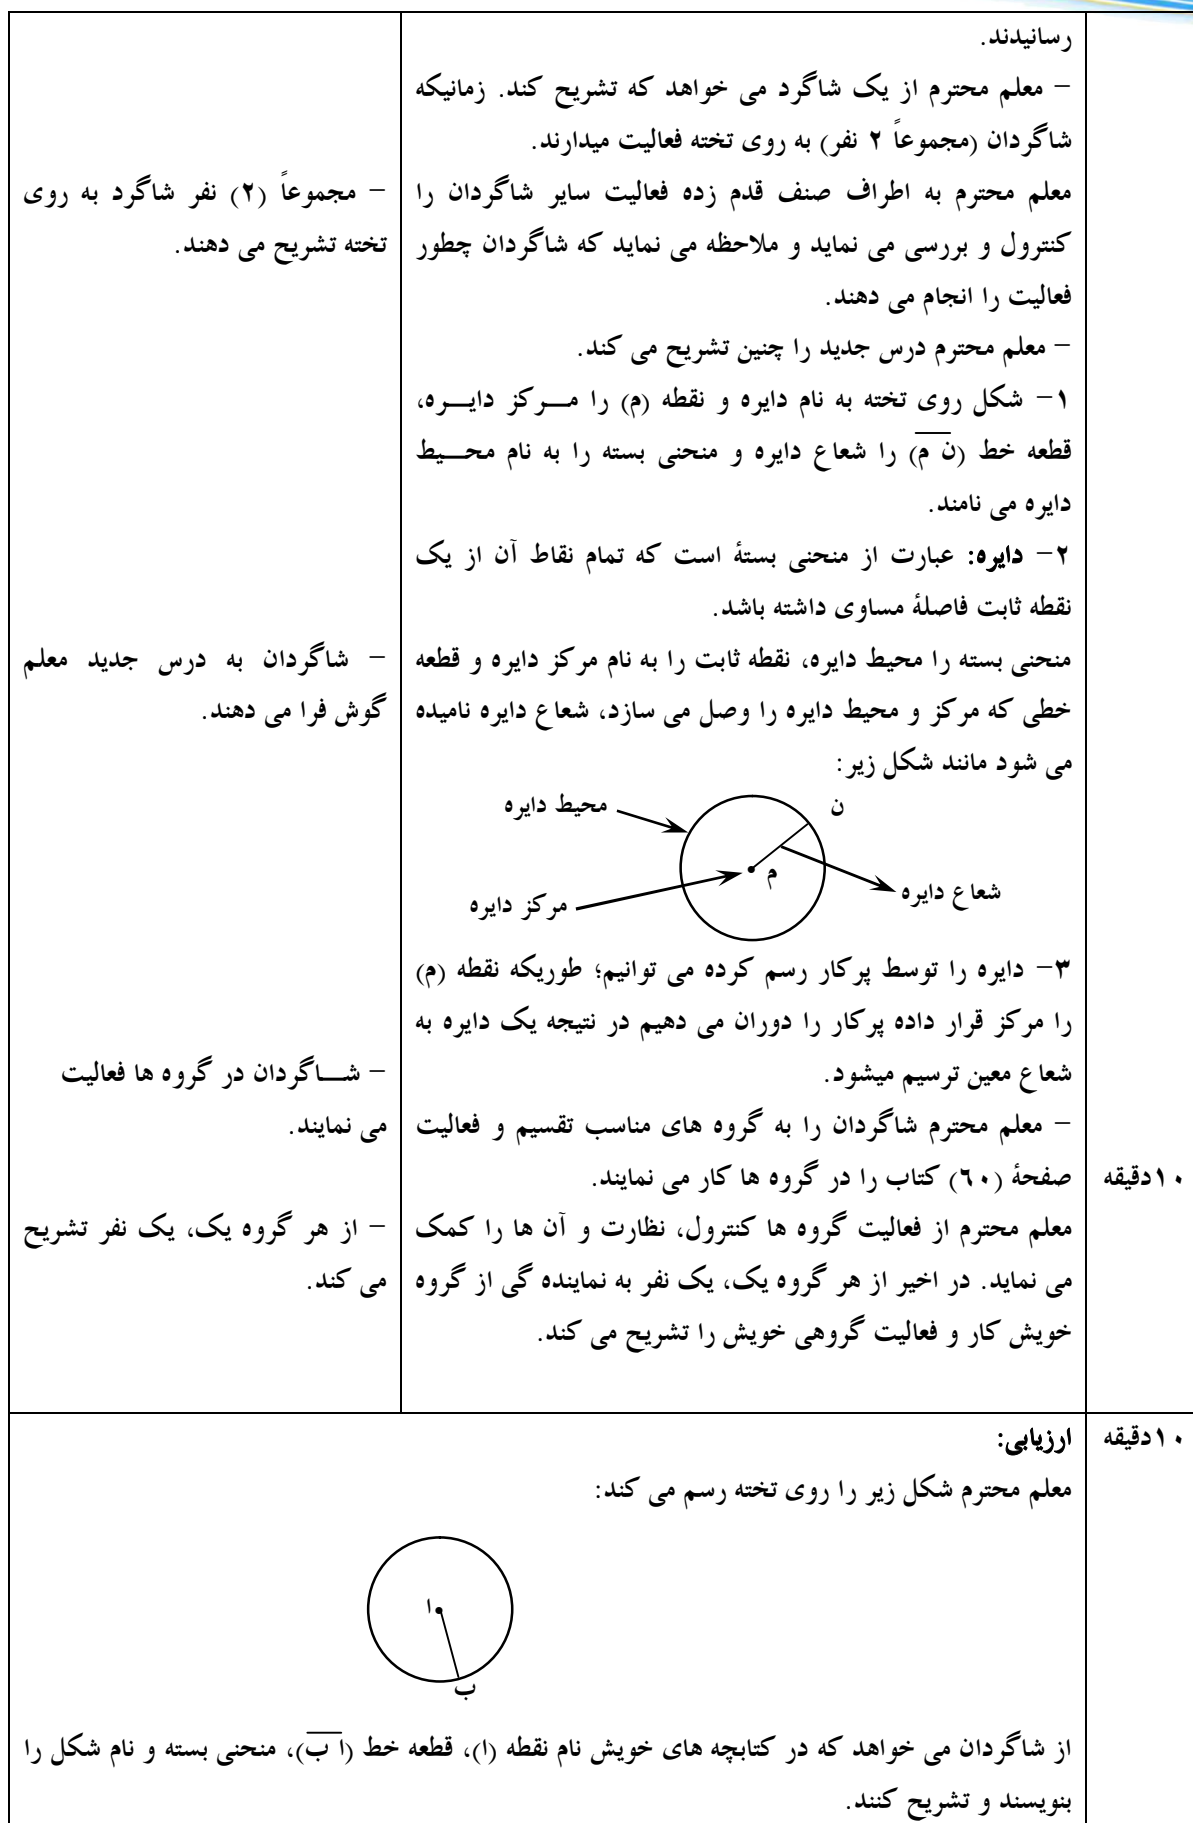 رسانیدند.
– معلم محترم از یک شاگرد می خواهد که تشریح کند. زمانیکه
شاگردان (مجموعاً ۲ نفر) به روی تخته فعالیت میدارند.
معلم محترم به اطراف صنف قدم زده فعالیت سایر شاگردان را
کنترول و بررسی می نماید و ملاحظه می نماید که شاگردان چطور
فعالیت را انجام می دهند.
– معلم محترم درس جدید را چنین تشریح می کند.
۱– شکل روی تخته به نام دایره و نقطه (م) را مـــرکز دایـــره،
قطعه خط (ن م) را شعاع دایره و منحنی بسته را به نام محـــیط
دایره می نامند.
۲– دایره: عبارت از منحنی بستهٔ است که تمام نقاط آن از یک
نقطه ثابت فاصلهٔ مساوی داشته باشد.
منحنی بسته را محیط دایره، نقطه ثابت را به نام مرکز دایره و قطعه
خطی که مرکز و محیط دایره را وصل می سازد، شعاع دایره نامیده
می شود مانند شکل زیر:
ن
محیط دایره
م
شعاع دایره
مرکز دایره
۳– دایره را توسط پرکار رسم کرده می توانیم؛ طوریکه نقطه (م)
را مرکز قرار داده پرکار را دوران می دهیم در نتیجه یک دایره به
شعاع معین ترسیم میشود.
– معلم محترم شاگردان را به گروه های مناسب تقسیم و فعالیت
صفحهٔ (٦۰) کتاب را در گروه ها کار می نمایند.
معلم محترم از فعالیت گروه ها کنترول، نظارت و آن ها را کمک
می نماید. در اخیر از هر گروه یک، یک نفر به نماینده گی از گروه
خویش کار و فعالیت گروهی خویش را تشریح می کند.
– مجموعاً (۲) نفر شاگرد به روی
تخته تشریح می دهند.
– شاگردان به درس جدید معلم
گوش فرا می دهند.
– شـــاگردان در گروه ها فعالیت
می نمایند.
– از هر گروه یک، یک نفر تشریح
می کند.
۱۰دقیقه
۱۰دقیقه
ارزیابی:
معلم محترم شکل زیر را روی تخته رسم می کند:
ا
ب
از شاگردان می خواهد که در کتابچه های خویش نام نقطه (ا)، قطعه خط (ا ب)، منحنی بسته و نام شکل را
بنویسند و تشریح کنند.